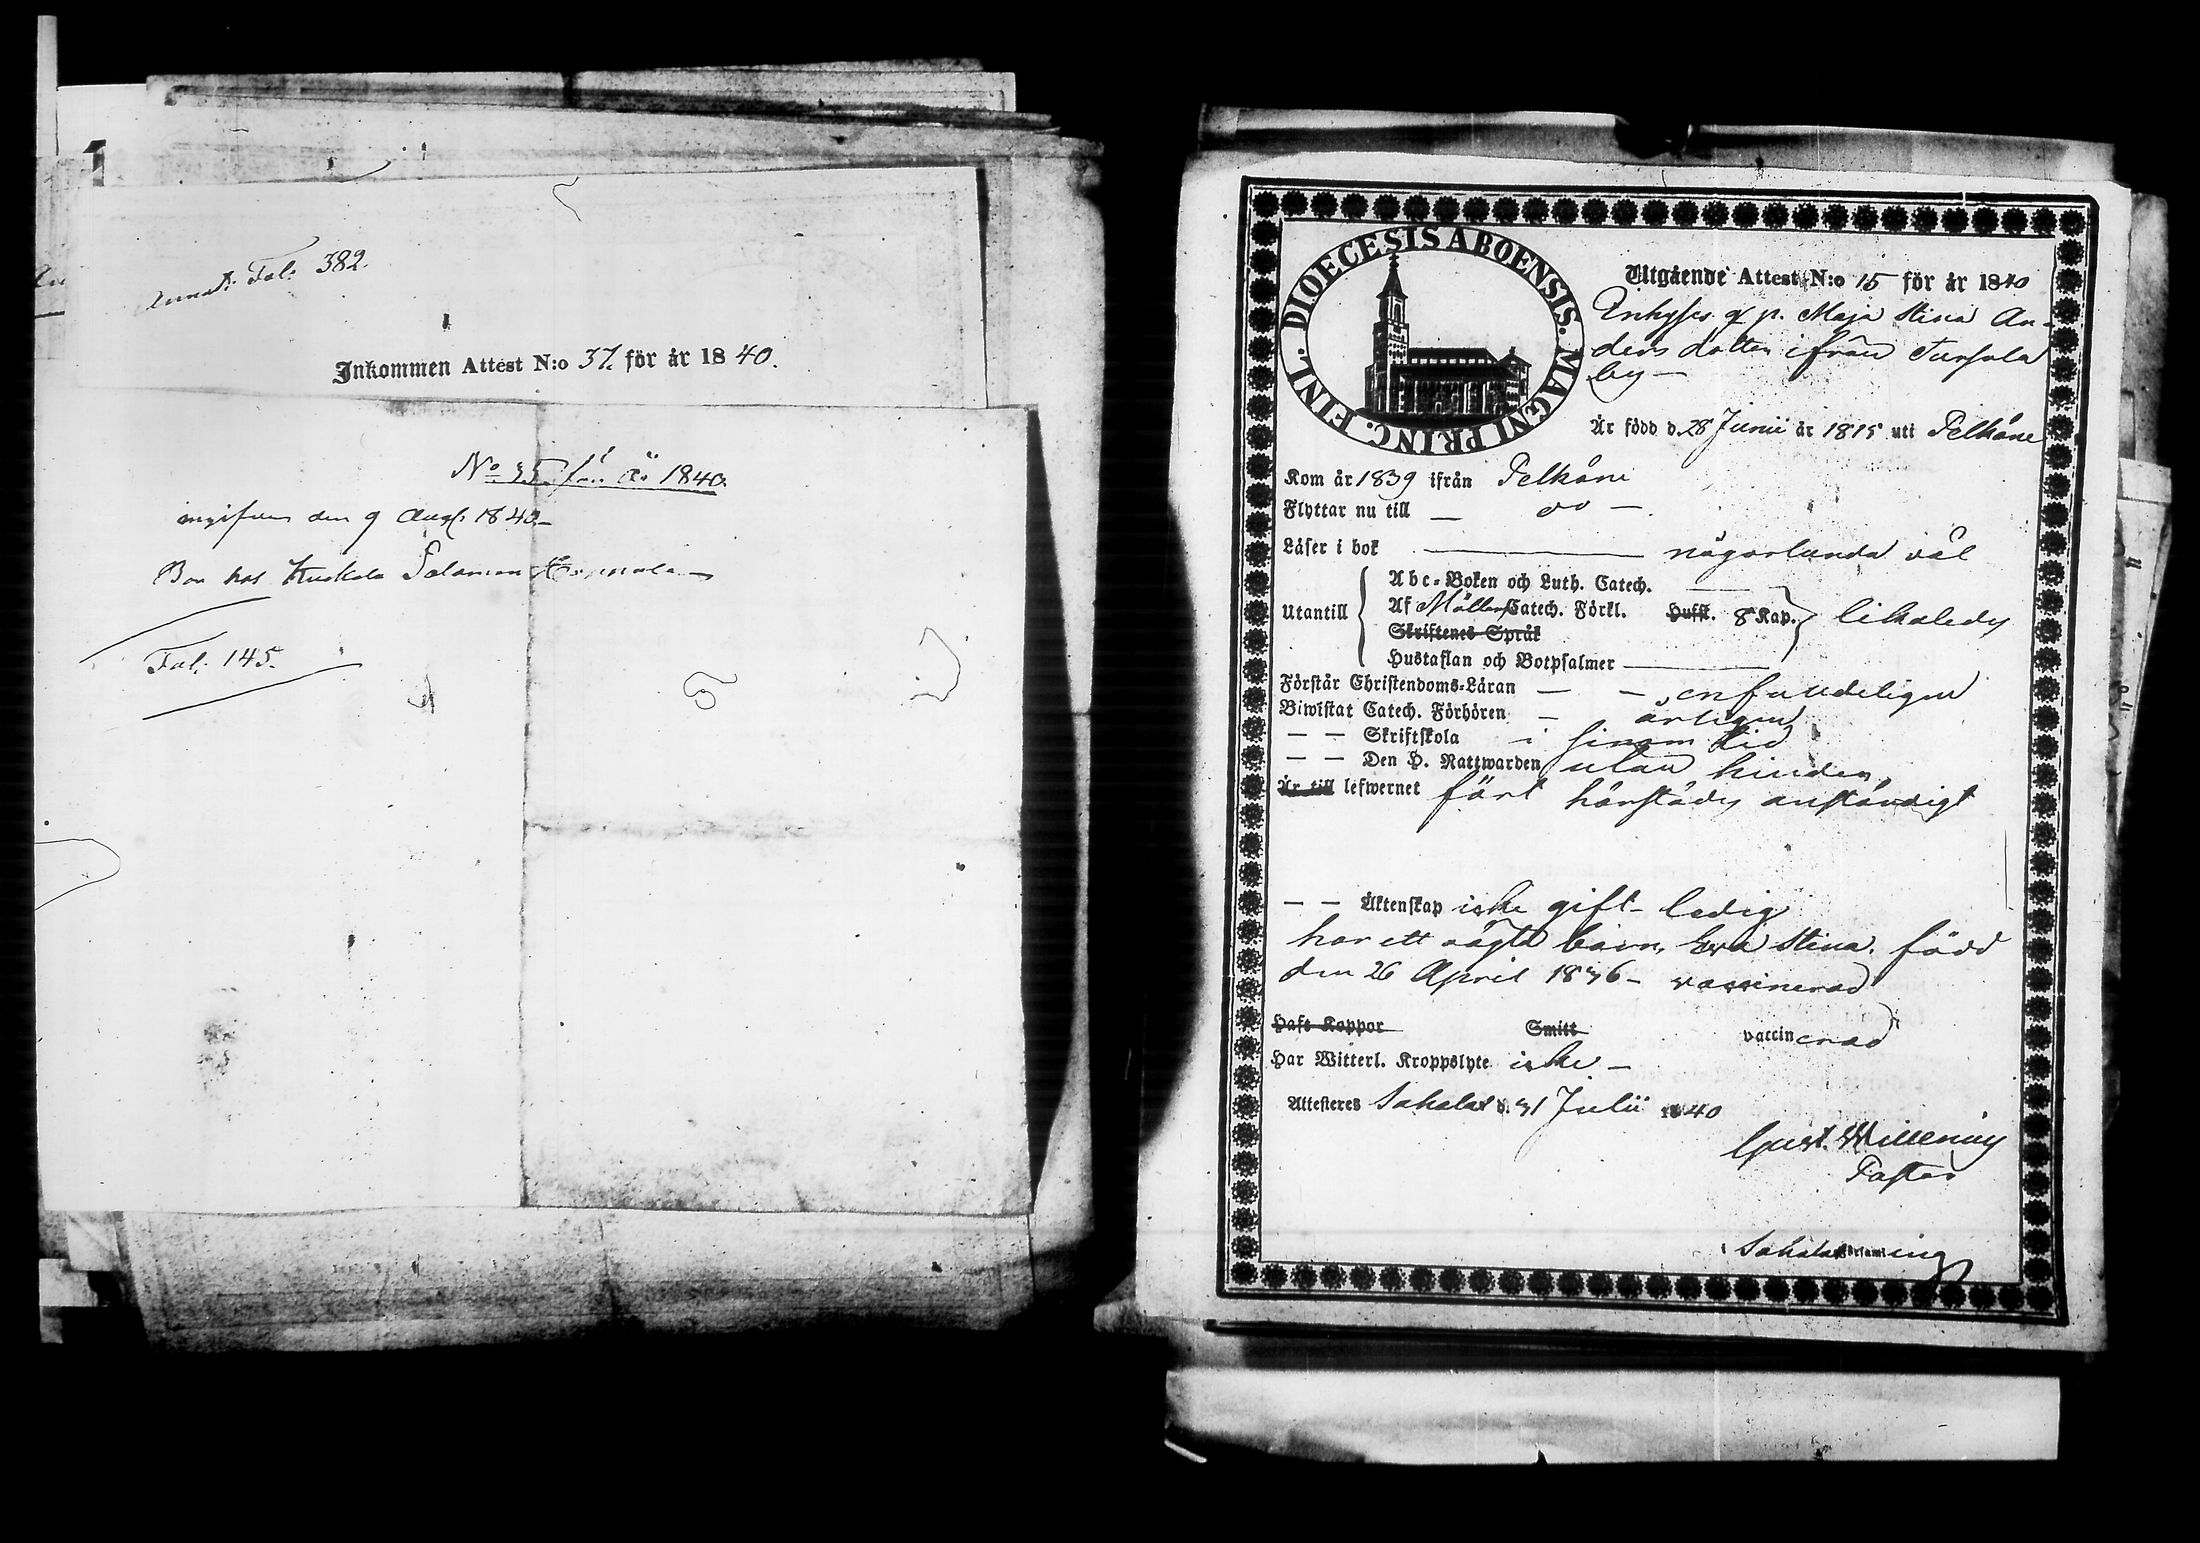 annot: Fol: 382.
Inkommen Attest N:o 37. för år 1840.
No 35 för år 1840.
ingifven den 9 Aug. 1840.
Bor hos Kuckola Salomon
Fol: 145.
DIOECESIS ABOENSIS. MAGNI PRINC. FINL.
Utgående Attest N:o 15 för år 1840
Maja Stina An-
ders dotter ifrån Tursola
by —
Är född d. 28 Junii år 1815 uti Pelkäne
Kom år 1839 ifrån Pelkäne
Flyttar nu till — do —
Läser i bok — någorlunda väl
Abc-Boken och Luth. Catech. —
Utantill Af Möllers Catech. Förkl. Hufst. 8 Kap. likaledes
Skriftenes Språk
Hustaflan och Botpsalmer —
Förstår Christendoms-Läran — — enfaldeligen
Biwistat Catech. Förhören — årligen
— — Skriftskola i sinom tid
— — Den H. Nattwarden utan hinder,
Är till lefwernet fört härstädes anständigt
— — Äktenskap icke gift - ledig
har ett oägta barn, Eva Stina. född
den 26 April 1836 - vaccinerad
Haft Koppor Smitt vaccinerad
Har Witterl. Kroppslyte icke —
Attesteres Sahalax d. 31 Julii 1840
Gust. Willenius
Pastor
i Sahalax församling